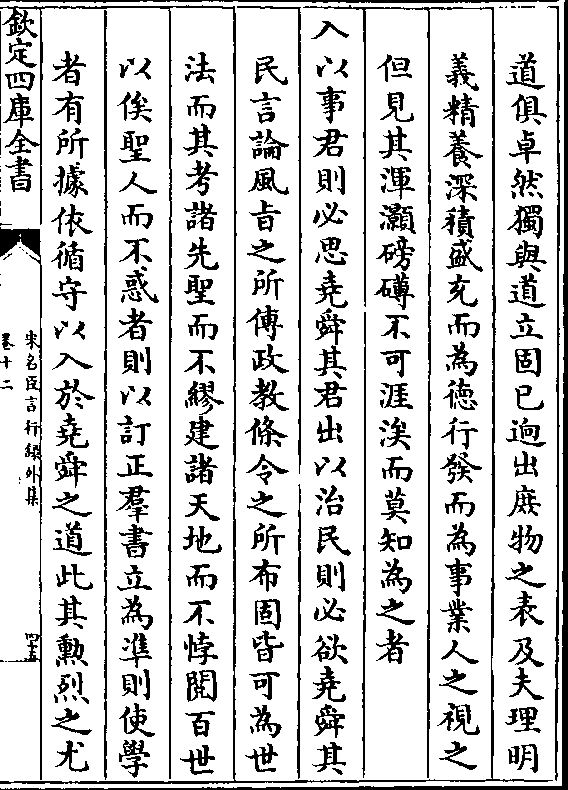 道俱卓然獨與道立固已逈出庻物之表及夫理明
義精養深積盛充而為徳行發而為事業人之視之
但見其渾灝磅礴不可涯涘而莫知為之者
入以事君則必思堯舜其君出以治民則必欲堯舜其
民言論風旨之所傳政教條令之所布固皆可為世
法而其考諸先聖而不繆建諸天地而不悖閲百世
以俟聖人而不惑者則以訂正羣書立為凖則使學
者有所據依循守以入於堯舜之道此其勲烈之尤
欽定四庫全書
宋名臣言行録外集
卷十二